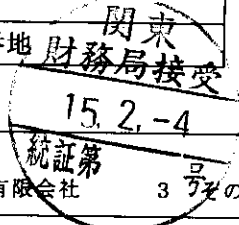 地
関東
財務局接受
15.2.-4
統証第
有限会社 3 号その